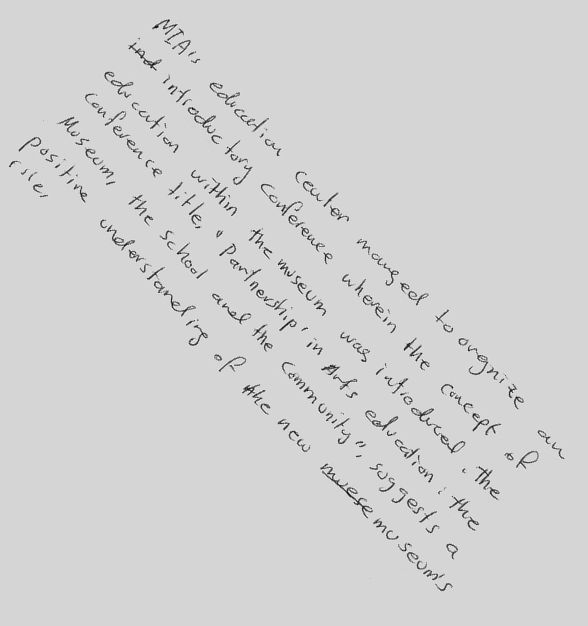 MIA's education center manged to orgnize an
introductory conference wherein the concept of
education within the museum was introduced. the
conference title, "Partnership' in Arts education: the
Museum, the school and the community", suggests a
positive understanding of the new museum's
role.